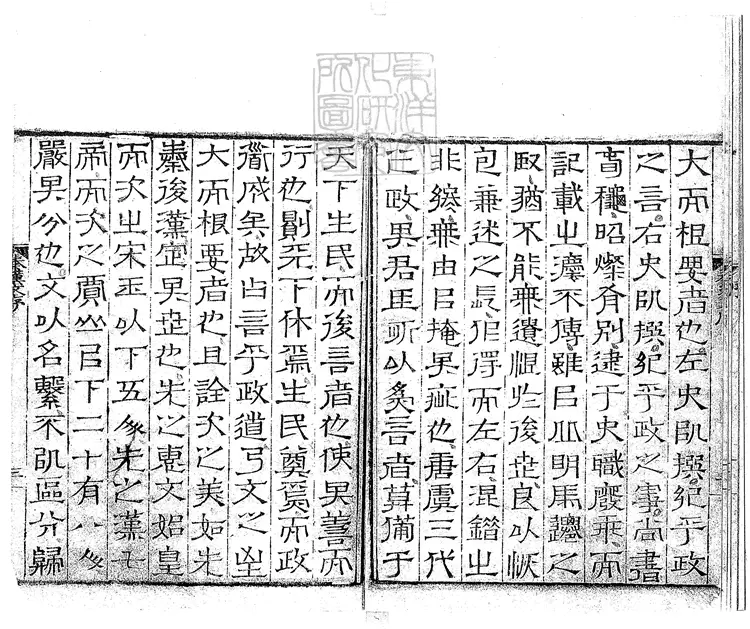 大而根要者也左史所撰紀乎政
之言右史所撰紀乎政之事尚書
旾穐昭燦有別逮于史職廢乖而
記載之不傳雖㠯丘明馬遷之
猶不能無遺恨於後世良以恢
包兼述之長得而左右混錯之
非由㠯掩其疵也唐虞三代
之政其君臣所以言者莫備于
天下生民而後言者也使其善而
行也則天下休焉生民奠焉而政
衜成矣故曰言乎政道乎文之至
大而根要者也且詮次之美如先
秦後漢定其世也先之文始皇
而次之宋玉以下五人先之漢
帝而次之賈山㠯下二十有八人
嚴其分也文以名繫不以區分歸